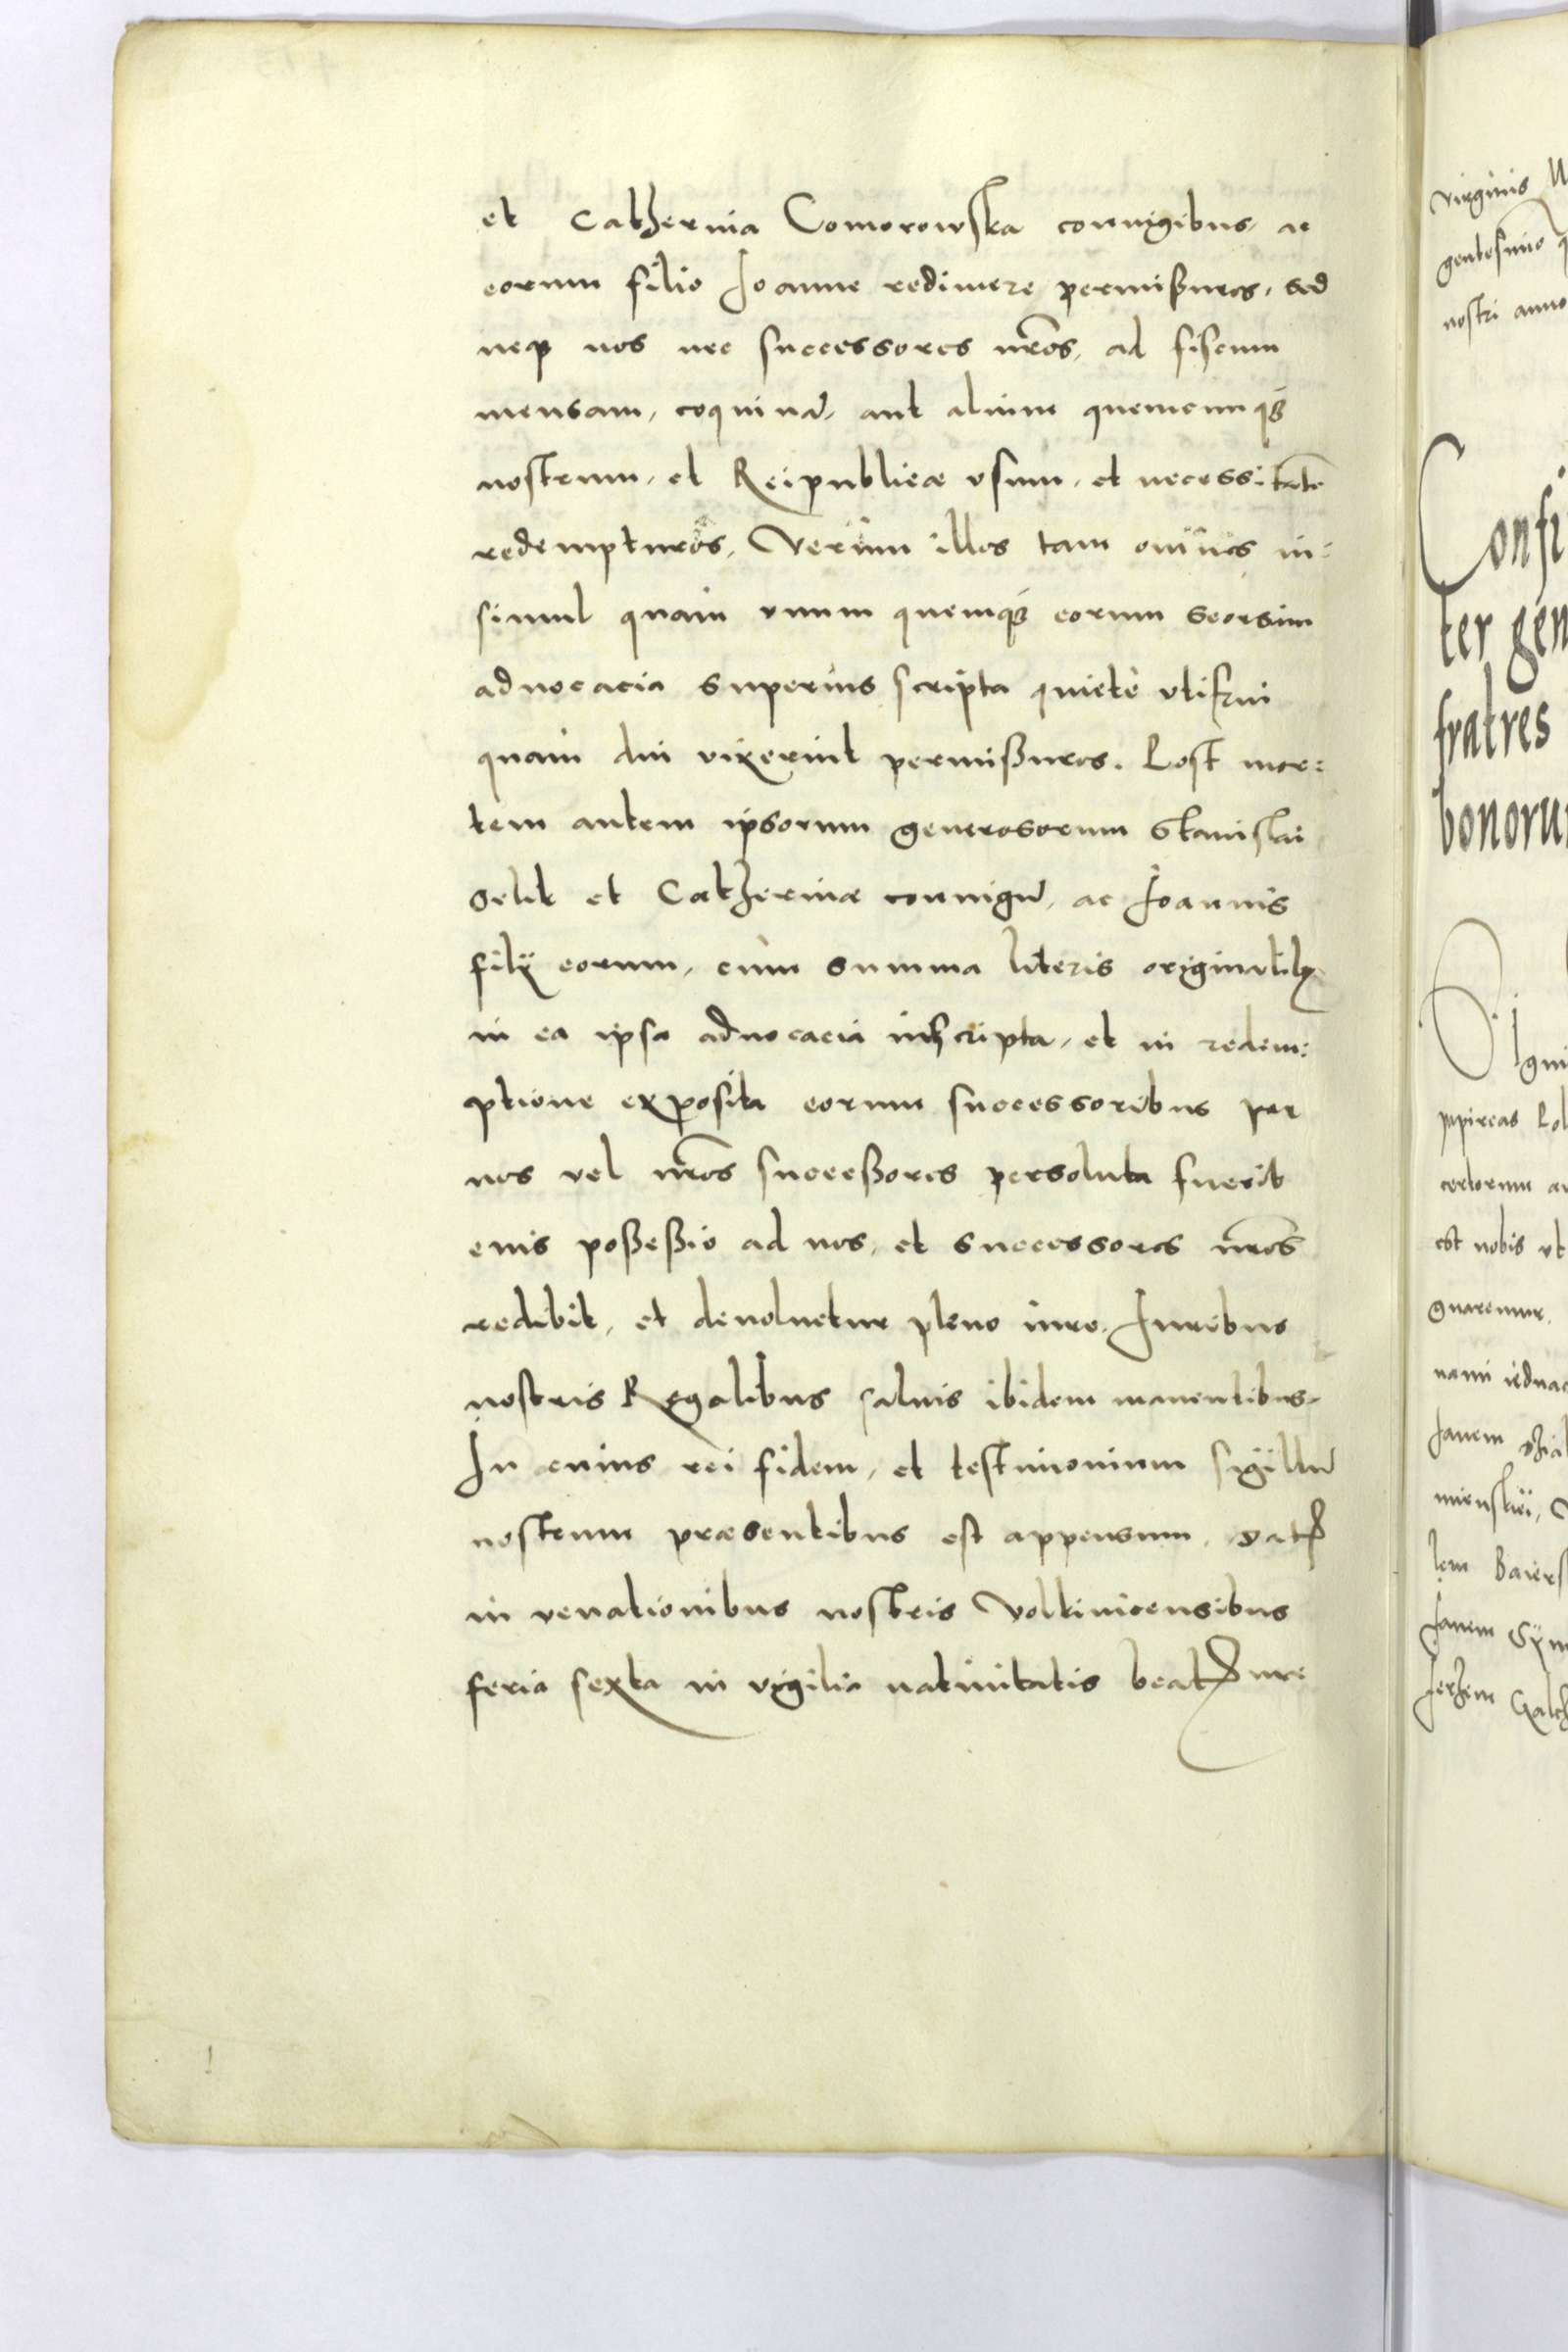 et Catherina Comorowska coniugibus, ac
eorum filio Joanne redimere permißuros, sed
neq3 nos nec successores nr̃os, ad fiscum
mensam, coquinã, aut alium quemcunq3
nostrum, et Reipublicæ vsum, et necessitatẽ
redempturos, Verum illos tam omnes in:
simul quam vnum quemq3 eorum seorsim
aduocacia superius scripta quietè vti frui
quam diu vixerint permißuros. Post mor:
tem autem ipsorum generosorum Stanislai
Selit et Catherinæ coniugũ, ac Joannis
filij eorum, cum summa literis originalib9
in ea ipsa aduocacia inscripta, et in redem:
ptione exposita eorum successoribus per
nos vel nr̃os succeßores persoluta fuerit
cuius poßeßio ad nos, et successores nr̃os
redibit, et deuoluetur pleno iure, Juribus
nostris Regalibus saluis ibidem manentibus.
In cuius rei fidem, et testimonium sigillũ
nostrum præsentibus est appensum. Datꝭ
in venationibus nostris Voltinicensibus
feria sexta in vigilia natiuitatis beatꝭ
virginis
gentesimo
nostri anno
Confi
ter gen
fratres
bonoru
Digni
papireas
certorum
est nobis vt
guaremur.
Janem
lem
Janem